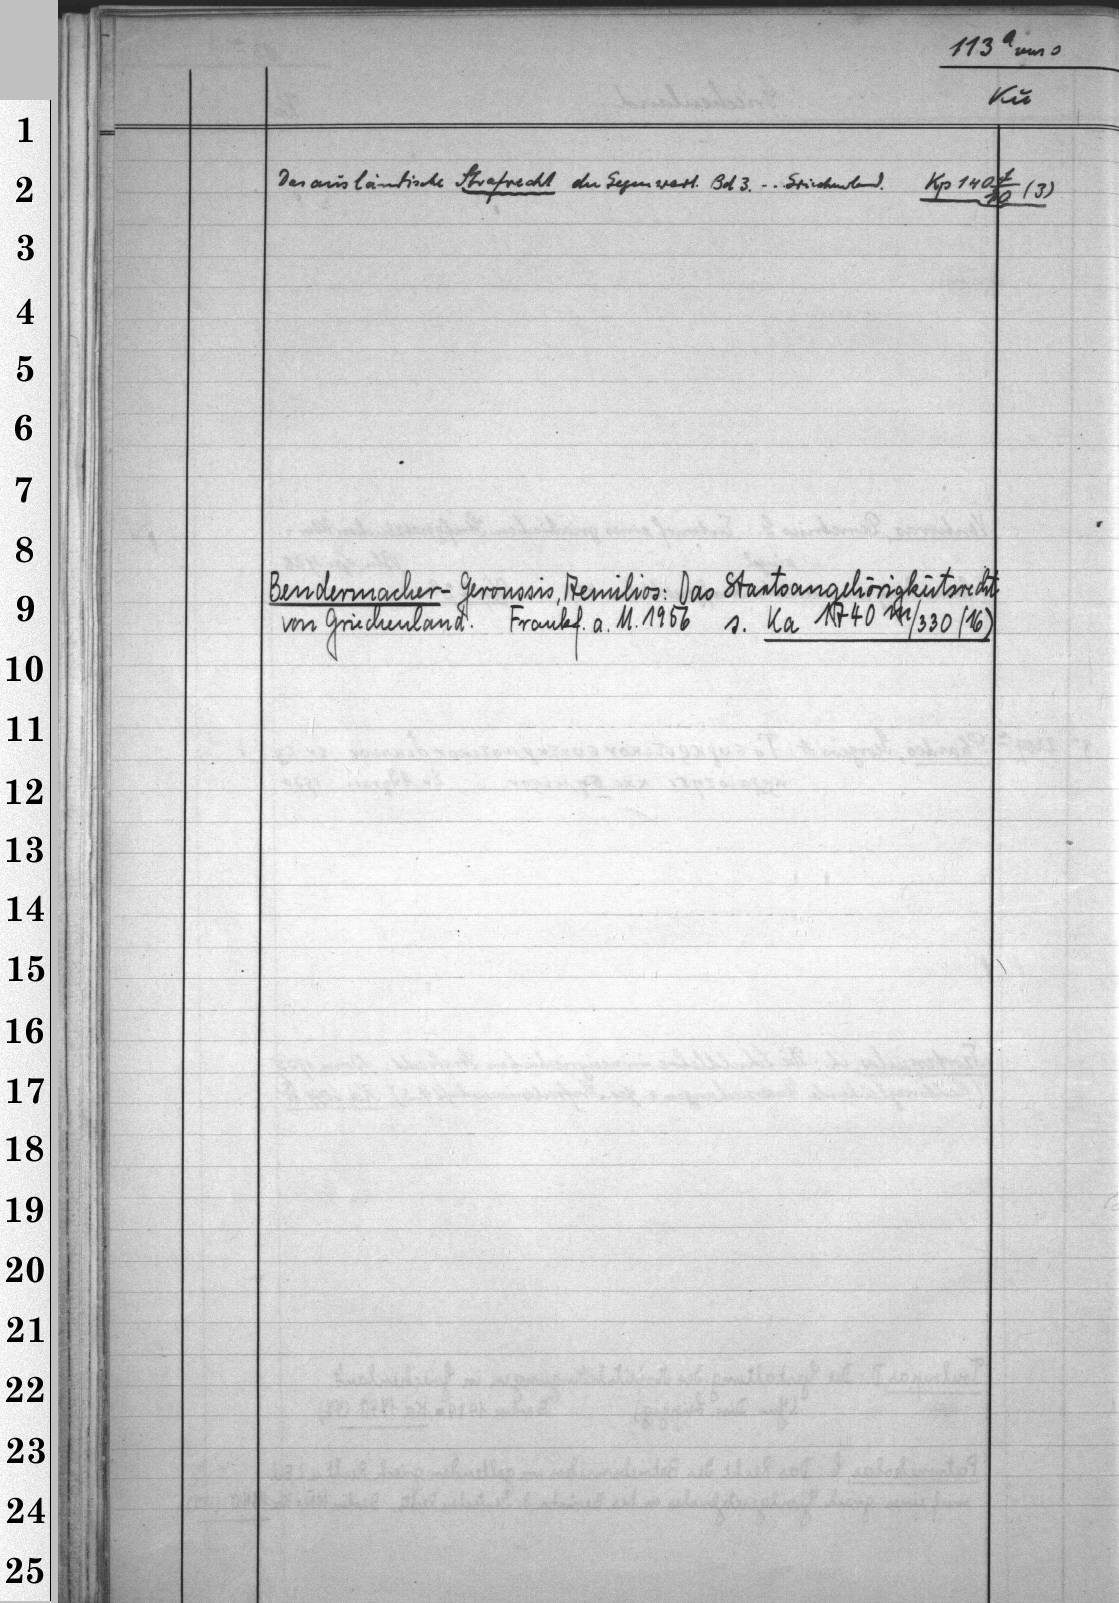 113 a verso
Kü
1
2 Das ausländische Strafrecht der Gegenwart. Bd 3. ... Griechenland. Kp 140 /10 (3)
3
4
5
6
7
8
Bendermacher-Geroussis, Aemilios: Das Staatsangehörigkeitsrecht
9 von Griechenland. Frankf. a. M. 1956 s. Ka 1740 m/330 (16)
10
11
12
13
14
15
16
17
18
19
20
21
22
23
24
25